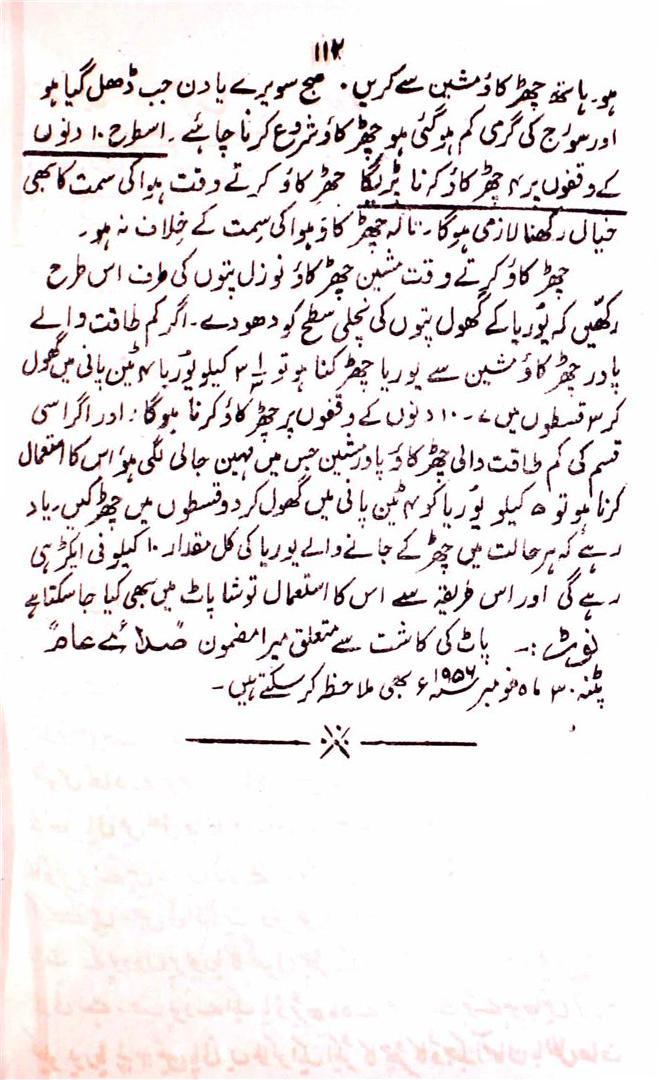 ۱۱۲
ہو۔ ہاتھ چھڑکاؤ مشین سے کریں۔ صبح سویرے یا دن جب ڈھل گیا ہو
اور سورج کی گرمی کم ہوگئی ہو چھڑکاؤ شروع کرنا چاہئے۔ اسطرح ۱۰ دنوں
کے وقفوں پر ۴ چھڑکاؤ کرنا پڑیگا چھڑکاؤ کرتے وقت ہوا کی سمت کا بھی
خیال رکھنا لازمی ہوگا۔ تاکہ چھڑکاؤ ہوا کی سمت کے خلاف نہ ہو۔
چھڑکاؤ کرتے وقت مشین چھڑکاؤ نوزل پتوں کی طرف اس طرح
رکھیں کہ یوریا کے گھول پتوں کی نچلی سطح کو دھودے۔ اگر کم طاقت والے
پاور چھڑکاؤ مشین سے یوریا چھڑکنا ہو تو ۳ ۱/۲ کیلو یوریا ۴ ٹین پانی میں گھول
کر ۳ قسطوں میں ۷-۱۰ دنوں کے وقفوں پر چھڑکاؤ کرنا ہوگا، اور اگر اسی
قسم کی کم طاقت والی چھڑکاؤ پاور مشین جس میں مہین جالی لگی ہو اس کا استعمال
کرنا ہو تو ۵ کیلو یوریا کو ۴ ٹین پانی میں گھول کر دو قسطوں میں چھڑکیں۔ یاد
رہے کہ ہر حالت میں چھڑکے جانے والے یوریا کی کل مقدار ۱۰ کیلو فی ایکڑ ہی
رہے گی اور اس طریقہ سے اس کا استعمال توشا پاٹ میں بھی کیا جا سکتا ہے
نوٹ :۔ پاٹ کی کاشت سے متعلق میرا مضمون صدائے عام
پٹنہ ۳۰ ماہ نومبر ۱۹۵۶ء بھی ملاحظہ کر سکتے ہیں۔